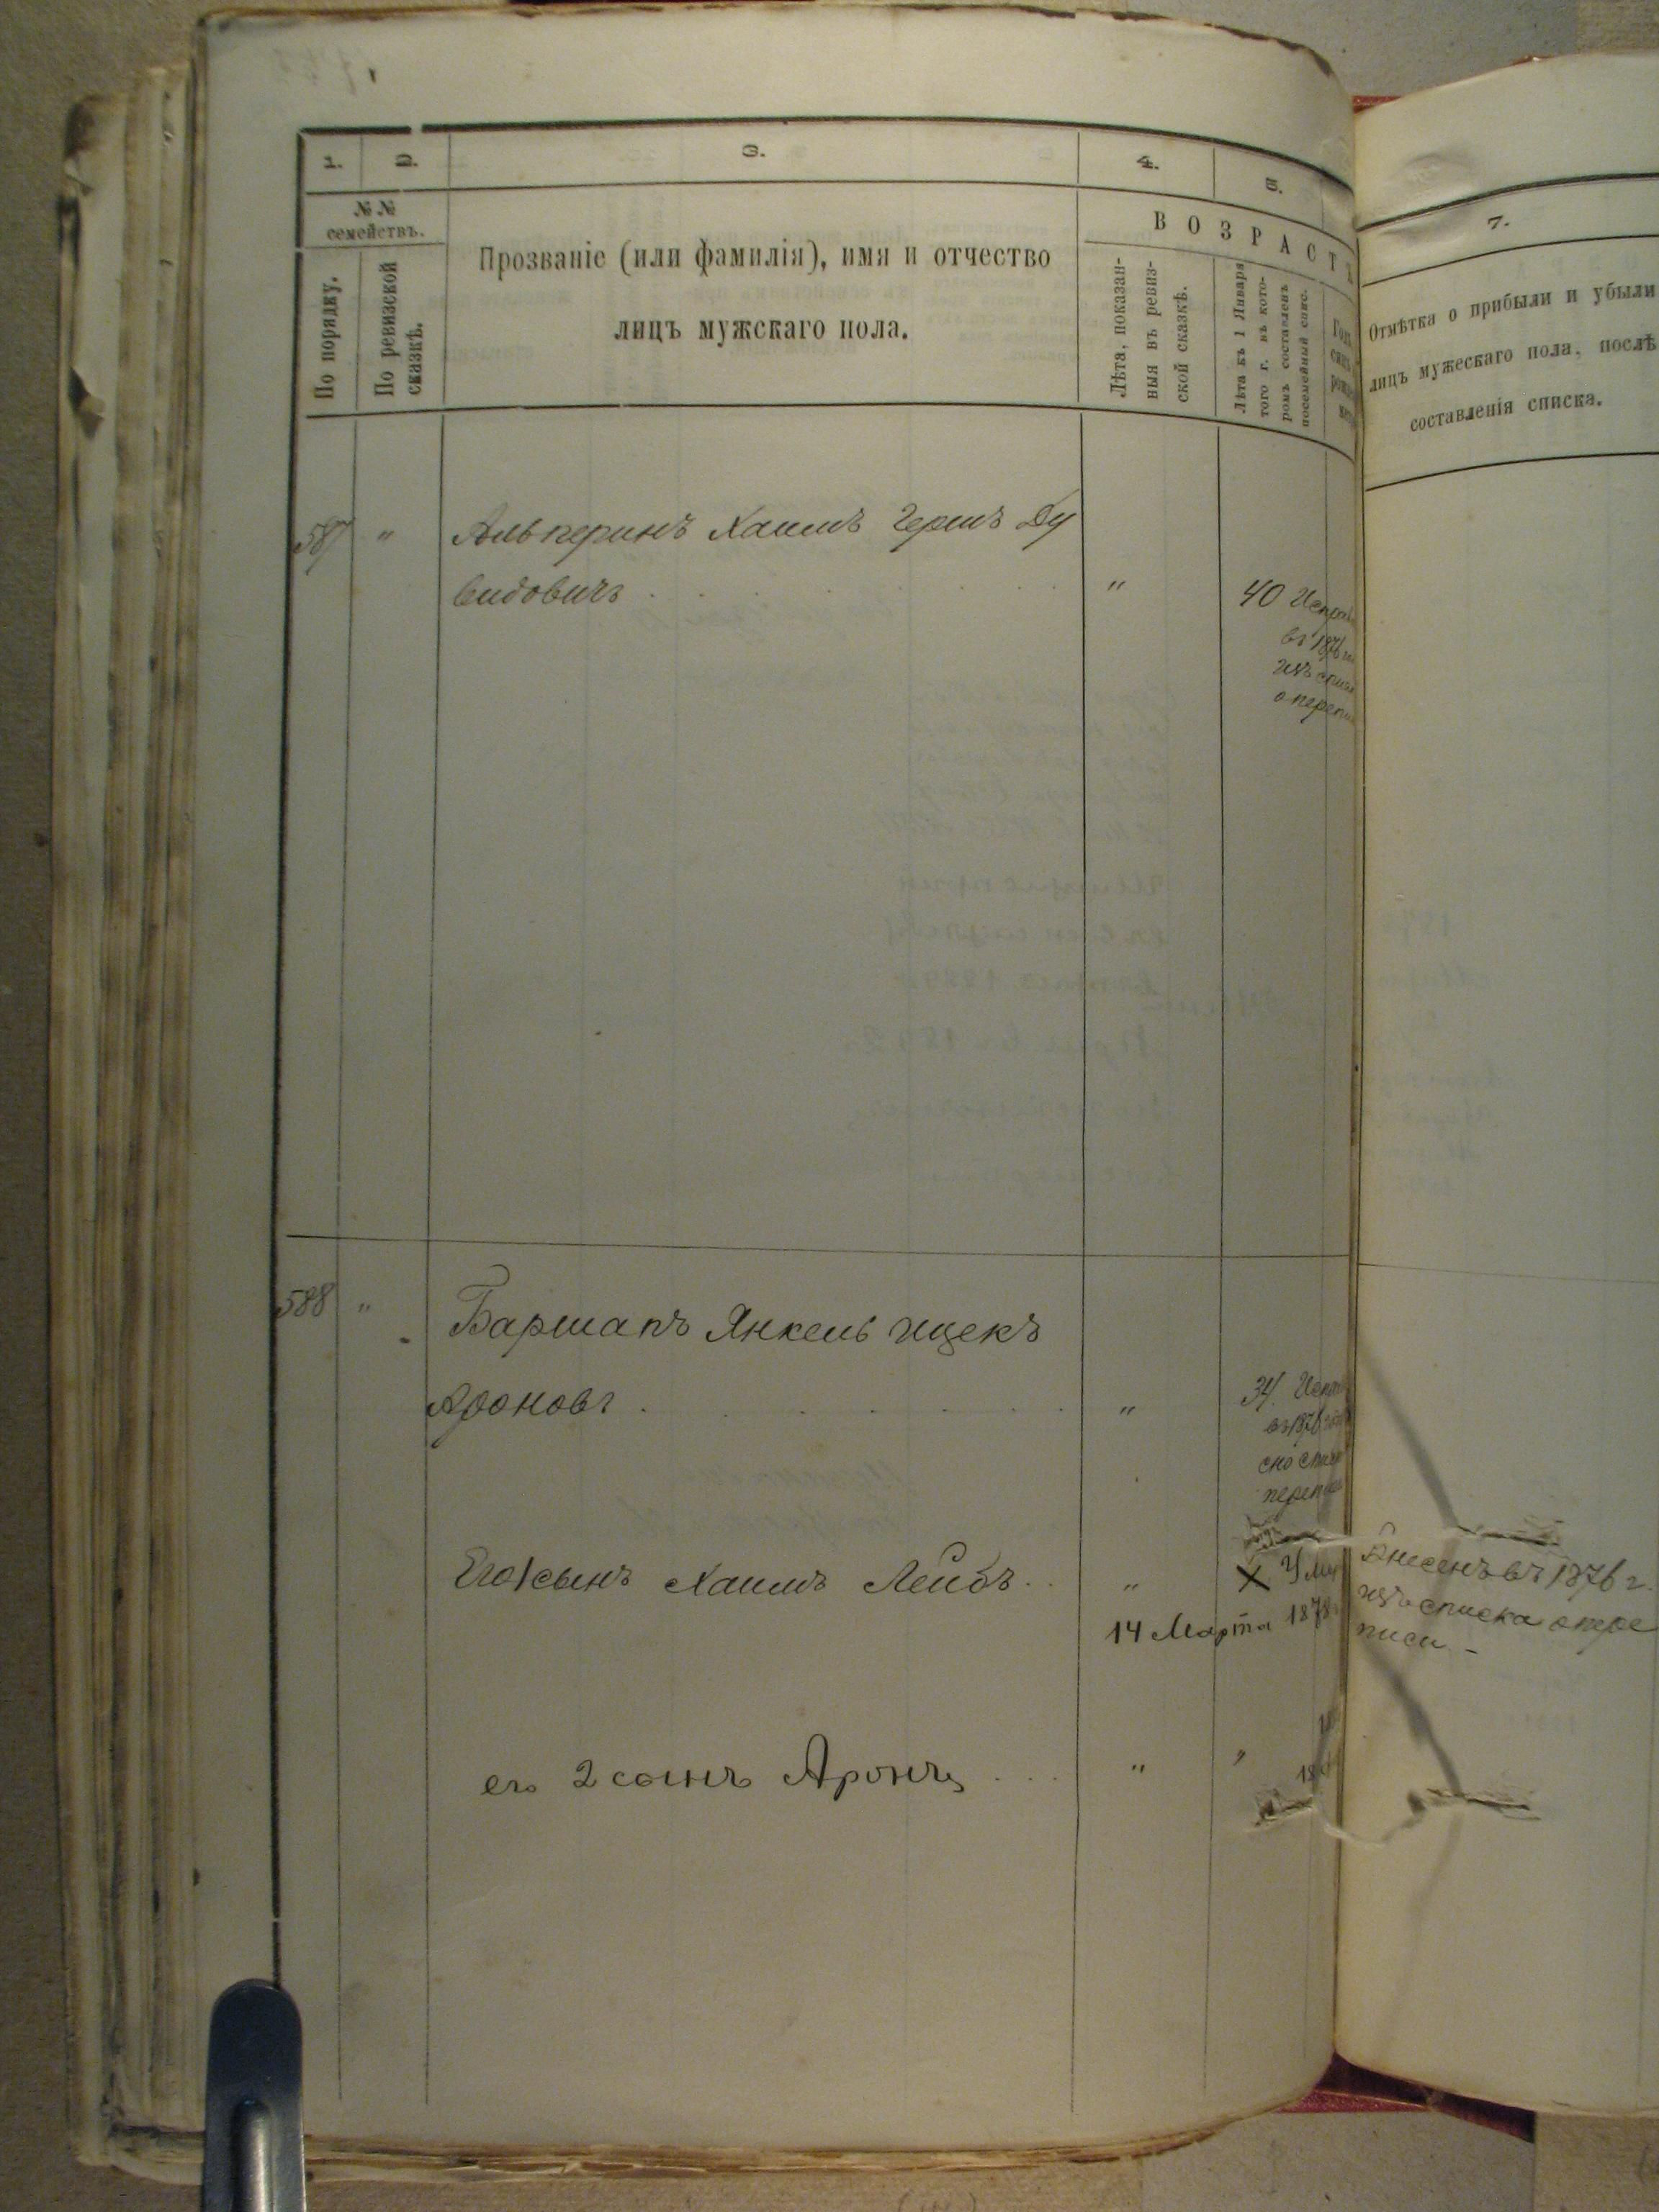 1. 2. 3. 4. 5.
№ № семействъ.
По порядку.
По ревизской сказкѣ.
Прозваніе (или фамилія), имя и отчество
лицъ мужскаго пола.
ВОЗРАСТЪ
Лѣта, показан-
ныя въ ревиз-
ской сказкѣ.
Лѣта къ 1 Января
того г. въ кото-
ромъ составленъ
посемейный спис.
7.
Отмѣтка о прибыли и убыли
лицъ мужескаго пола, послѣ
составленія списка.
587 " Альперинъ Хаимъ Гершъ Ду
видовичъ " 40
въ 1876
изъ
о
588 " Баршапъ Янкель Ицекъ
Ароновъ " 34
въ 1876
Его 1 сынъ Хаимъ Лейбъ " X
14 Марта 1878
Внесенъ въ 1876 г.
изъ списка о пере
писи -
его 2 сынъ Аронъ " "